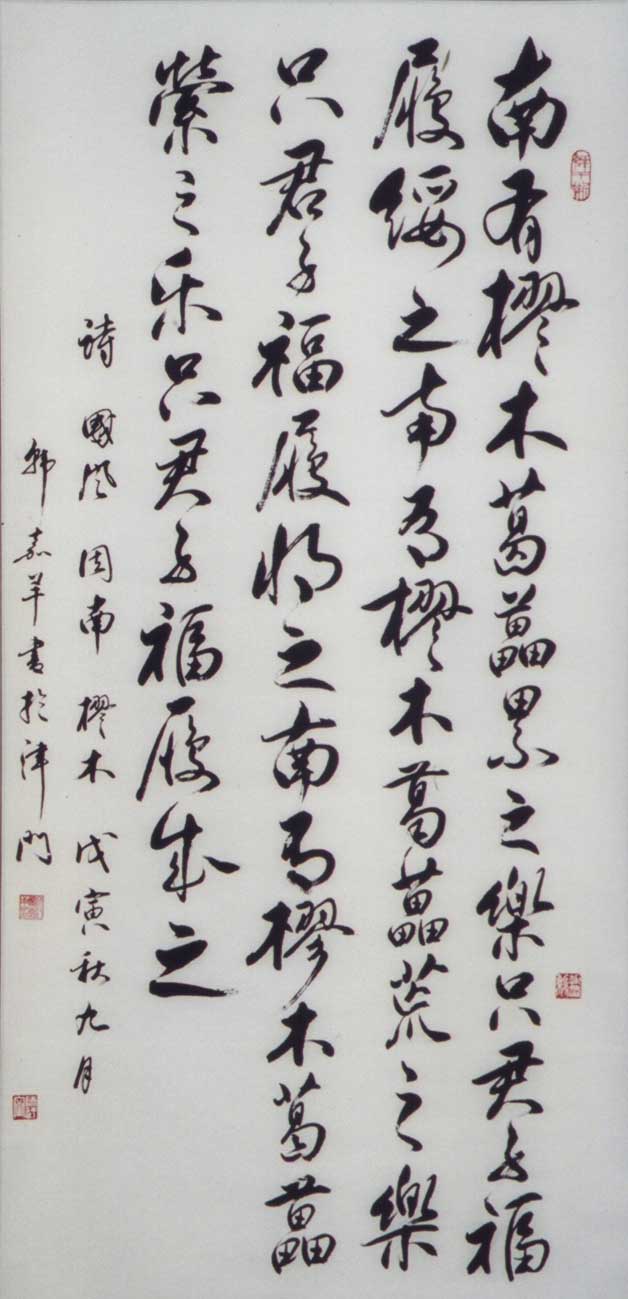 南有樛木葛藟累之樂只君子福
履綏之南有樛木葛藟荒之樂
只君子福履將之南有樛木葛藟
縈之乐只君子福履成之
詩 國風 周南 樛木 戊寅秋九月
韩嘉羊書於津門